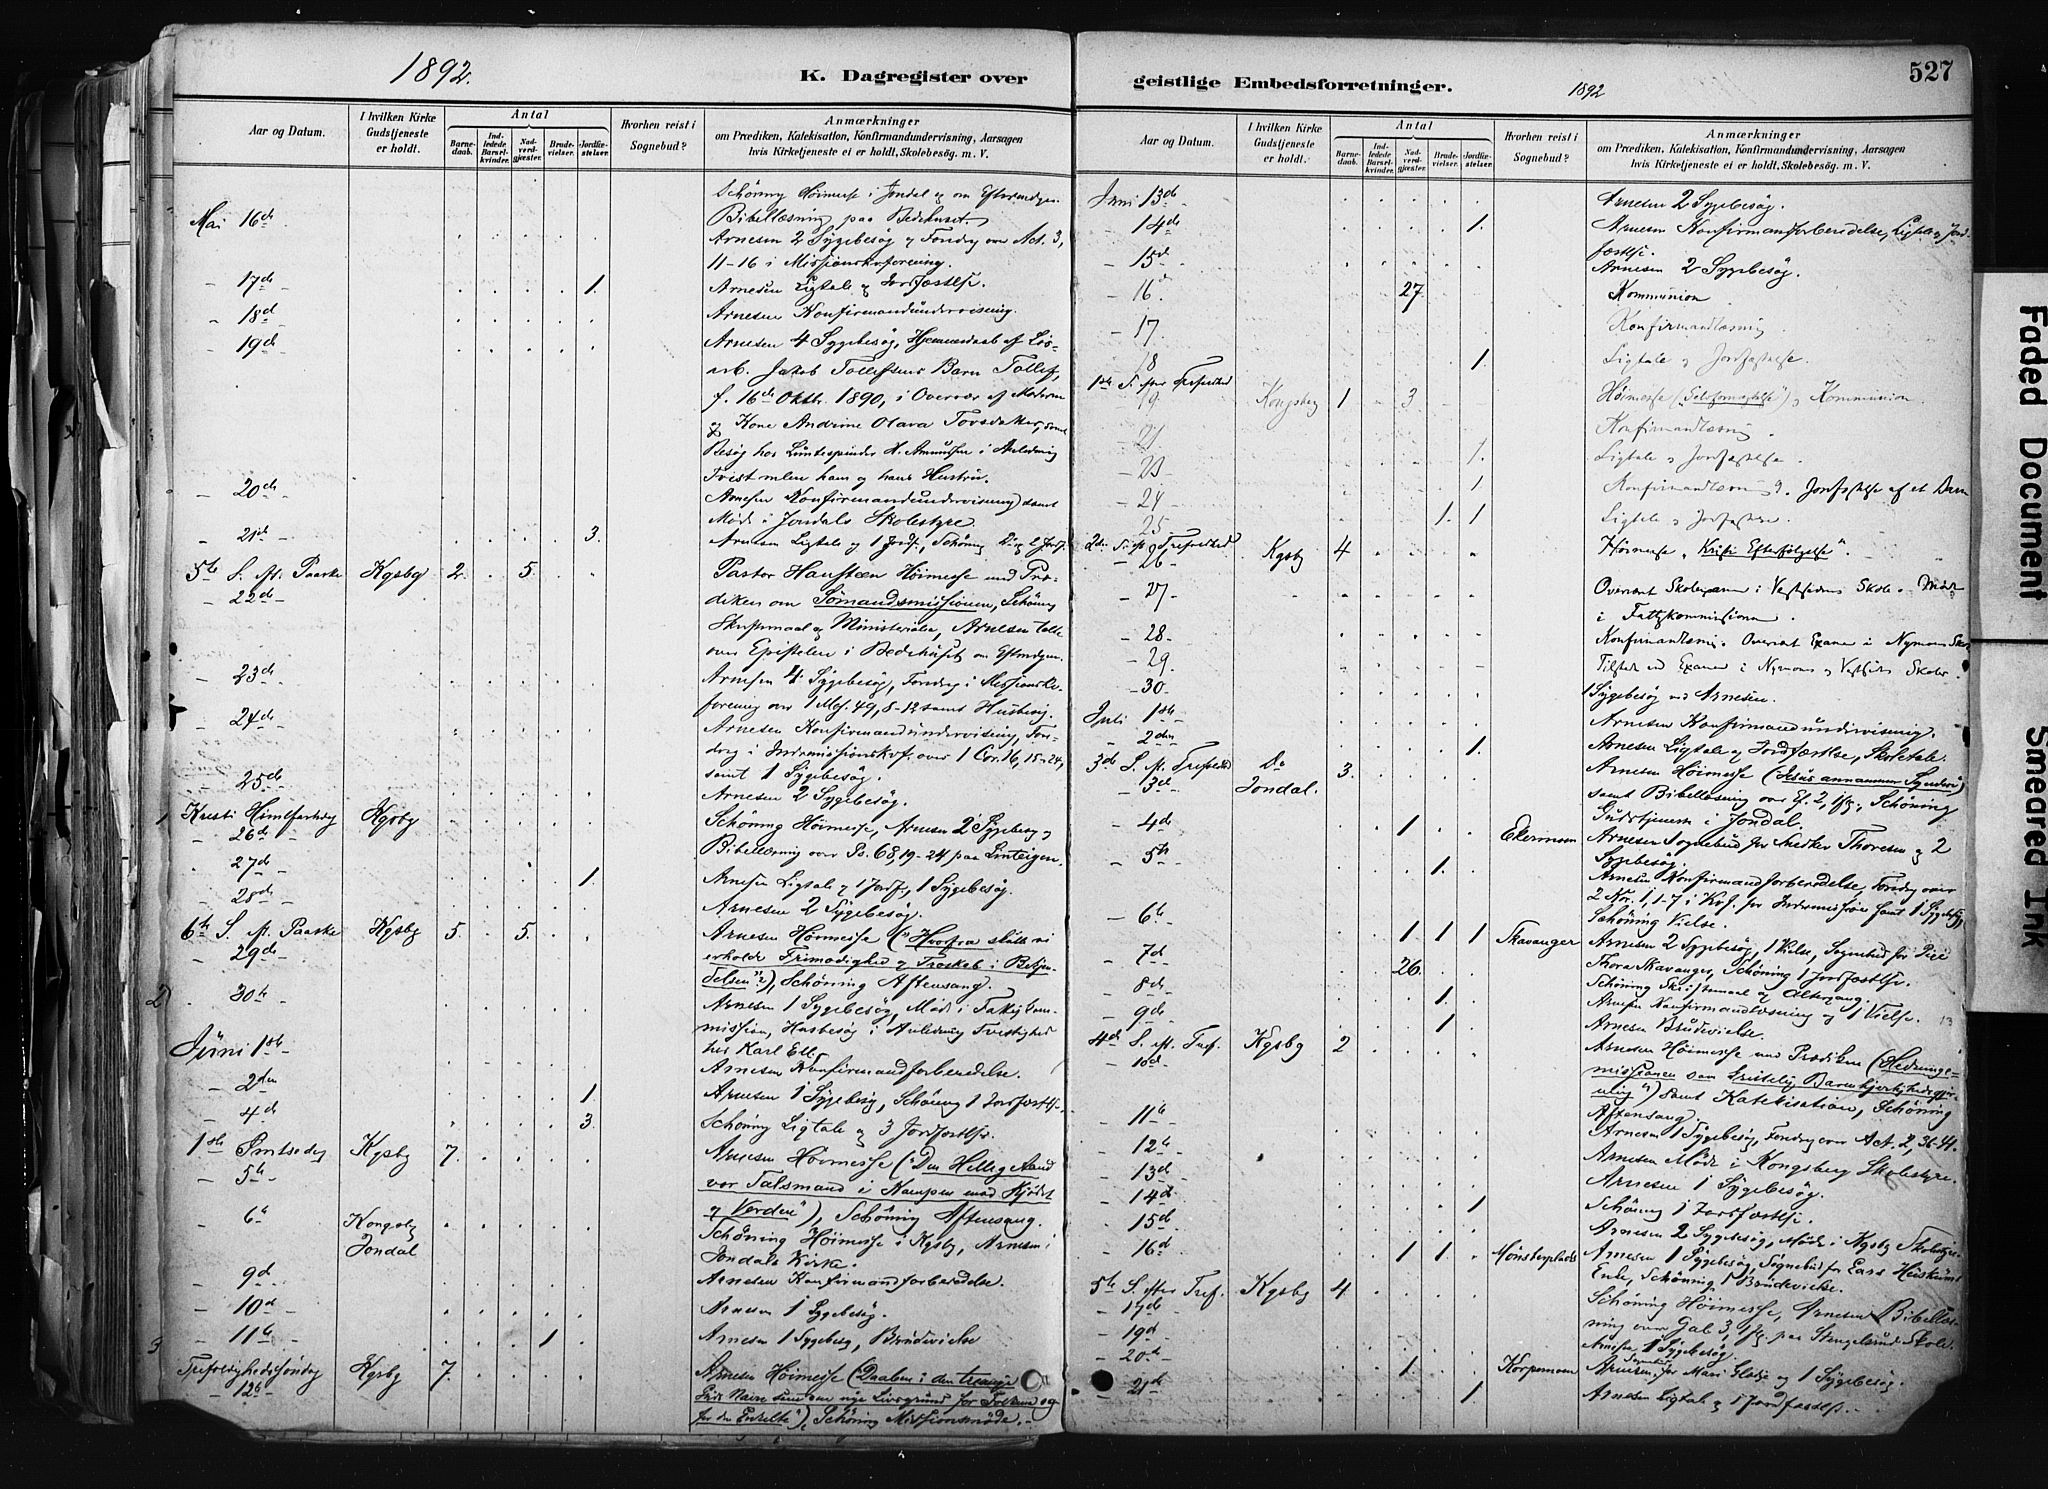 1892.
K. Dagregister over
Aar og Datum.
I hvilken Kirke Gudstjeneste er holdt.
Antal
Barnedaab.
Indledede Barselkvinder.
Nadverdgjæster.
Brudevielser.
Jordfæstelser.
Hvorhen reist i Sognebud?
Anmærkninger
om Prædiken, Katekisation, Konfirmandundervisning, Aarsagen
hvis Kirketjeneste ei er holdt, Skolebesög. m. V.
Schöning Höimesse i Jondal og om Eftermidgen
Mai 16de Bibellæsning paa Bedehuset.
Arnesen 2 Sygebesög og Foredrag over Act. 3,
11-16 i Missionskvforening.
- 17de 1. Arnesen Ligtale og Jordfæstelse.
" 18d Arnesen Konfirmandundervisning.
- 19de Arnesen 4 Sygebesög, Hjemmedaab af Lös-
arb. Jakob Tollefsens Barn Tollef,
f. 16de Oktbr. 1890, i Overvær af Moderen
og Kone Andrine Olava samt
Besög hos H. Amundsen i Anledning
Tvist mlem ham og hans Hustru.
- 20de Arnesen Konfirmandundervisning samt
Möde i Jondals Skolestyre.
- 21de 3. Arnesen Ligtale og 1 Jordf., Schöning Do og 2 Jordf.
5te S. ef. Paaske Kgsbg 2. 5. Pastor Hansteen Höimesse med Præ-
- 22de diken om Sömandsmissionen, Schöning
Skriftemaal og Ministerialia, Arnesen talte
over Epistelen i Bedehuset om Eftmdgen.
- 23de Arnesen 4 Sygebesög, Foredrag i Missionskv-
forening over 1 Mos. 49, 8-12 samt Husbesög.
- 24de Arnesen Konfirmandundervisning, Fore-
drag i Indremissionskvf. over 1 Cor. 16, 15-24,
samt 1 Sygebesög.
- 25de Arnesen 2 Sygebesög.
1 Kristi Himlfartsdag Kgsbg Schöning Höimesse, Arnesen 2 Sygebesg og
- 26de Bibellæsning over Ps. 68, 19-24 paa
- 27de 1. Arnesen Ligtale og 1 Jordf., 1 Sygebesög.
- 28de Arnesen 2 Sygebesög.
6te S. ef. Paaske Kgsbg 5. 5. Arnesen Höimesse ("Hvorfra skulle vi
- 29de erholde Frimodighed og Troskab i Bekjen-
delsen"?), Schöning Aftensang.
2) 30te Arnesen 1 Sygebesög, Möde i Fatigkom-
mission, Husbesög i Anledning Tvistighed
Juni 1ste hos Karl
Arnesen Konfirmandforberedelse.
- 2den 1 Arnesen 1 Sygebesög, Schöning 1 Jordfæstlse.
- 4d 3. Schöning Ligtale og 3 Jordfæstlser.
1ste Pintsedag Kgsbg 7. Arnesen Höimesse ("Den Hellig Aand
- 5te vor Talsmand i Kampen mod Kjödet
og Verden"), Schöning Aftensang.
- 6te Kongsbg Schöning Höimesse i Kgsbg, Arnesen i
Jondal Jondals Kirke.
- 9d Arnesen Konfirmandforberedelse.
- 10d Arnesen 1 Sygebesög.
3 - 11te 1 Arnesen 1 Sygebesg, Brudevielse
Trefoldighedssöndag Kgsbg 7. Arnesen Höimesse (Daaben i den treenige
- 12te Guds Navn som nye Livsgrund for Folkene og
for den Enkelte"), Schöning Missionsmöde.
geistlige Embedsforretninger.
1892
527
Aar og Datum.
I hvilken Kirke Gudstjeneste er holdt.
Antal
Barnedaab.
Indledede Barselkvinder.
Nadverdgjæster.
Brudevielser.
Jordfæstelser.
Hvorhen reist i Sognebud?
Anmærkninger
om Prædiken, Katekisation, Konfirmandundervisning, Aarsagen
hvis Kirketjeneste ei er holdt, Skolebesög. m. V.
Juni 13de Arnesen 2 Sygebesög.
- 14de 1. Arnesen Konfirmandforberedelse, Ligtale og Jord-
fæstlse.
- 15d Arnesen 2 Sygebesög.
- 16d 27. Kommunion
- 17. Konfirmandlæsning
18 1. Ligtale og Jordfæstelse.
1ste S. efter Trefoldhed
19 Kongsberg 1 3 Höimesse (") og Kommunion
- 21 Konfirmandlæsning.
- 23 1. Ligtale og Jordfæstelse.
- 24 1 Konfirmandlæsning. Jordfæstelse af et Barn
25 1. 1 Ligtale og Jordfæstelse.
2den S. ef Trefoldhed
- 26 Kgsbg 4 Höimesse "Kristi Efterfölgelse".
- 27 Overvært Skoleexamen i Vestsidens Skole. Möde
i Fattigkommissionen.
- 28 Konfirmandlæsning. Overvært Examen i Nymoens Skole
- 29. Tilstede ved Examen i Nymoens og Vestsidens Skoler.
- 30. 1 Sygebesög ved Arnesen.
Juli 1ste Arnesen Konfirmandundervisning.
- 2den 1. Arnesen Ligtale og Jordfæstlse, Skoletale.
3de S. ef. Trefoldhed Do 3. Arnesen Höimesse (Jesus annammer Syndere)
- 3de Jondal. samt Bibellæsning over Ef. 2, 1fg., Schöning
Gudstjeneste i Jondal.
- 4de 1 Ekermoen Arnesen Sognebud for Snedker Thoresen og 2
Sygebesög.
- 5te 1. Arnesen Konfirmandforberedelse, Foredrag over
2 Kor. 1, 1-7 i Kvf. for Indremission samt 1 Sygebesög,
Schöning Vielse.
- 6te 1 1 1 Skavanger Arnesen 2 Sygebesög, 1 Vielse, Sognebud for Pige
- 7d Thora Skavanger, Schöning 1 Jordfæstlse.
26. Schöning Skriftemaal og Altergang.
- 8de 1. Arnesen Konfirmandlæsning og 1 Vielse. 13
- 9de 1 Arnesen Brudevielse.
4de S. ef. Tref. Kgsbg 2 Arnesen Höimesse med Prædiken (Hedninge-
- 10d missionen som kristelig Barmhjertighedsgjer-
ning") samt Katekisation, Schöning
Aftensang.
- 11te Arnesen 1 Sygebesög, Foredrag over Act. 2, 36-41.
- 12te Arnesen Möde i Kongsberg Skolestyre.
- 13d Arnesen 1 Sygebesög.
- 14de 1 Schöning 1 Jordfæstlse.
- 15d Arnesen 2 Sygebesög, Möde i Kgsbg Skolestyre.
- 16d 1 1. Mönsterplads Arnesen 1 Sygebesög, Sognebud for Lars
Enke, Schöning 1 Brudevielse.
5te S. efter Tref. Kgsbg 4 Schöning Höimesse, Arnesen Bibellæs-
- 17de ning over Gal 3, 1fg. paa Stengelsrud Skole.
- 19d Arnesen 1 Sygebesög.
- 20de 1 Korpemoen Arnesen Sognebud for Mari og 1 Sygebesög.
- 21d 1 Arnesen Ligtale og 1 Jordfæstlse.
Faded Document
Smeared Ink